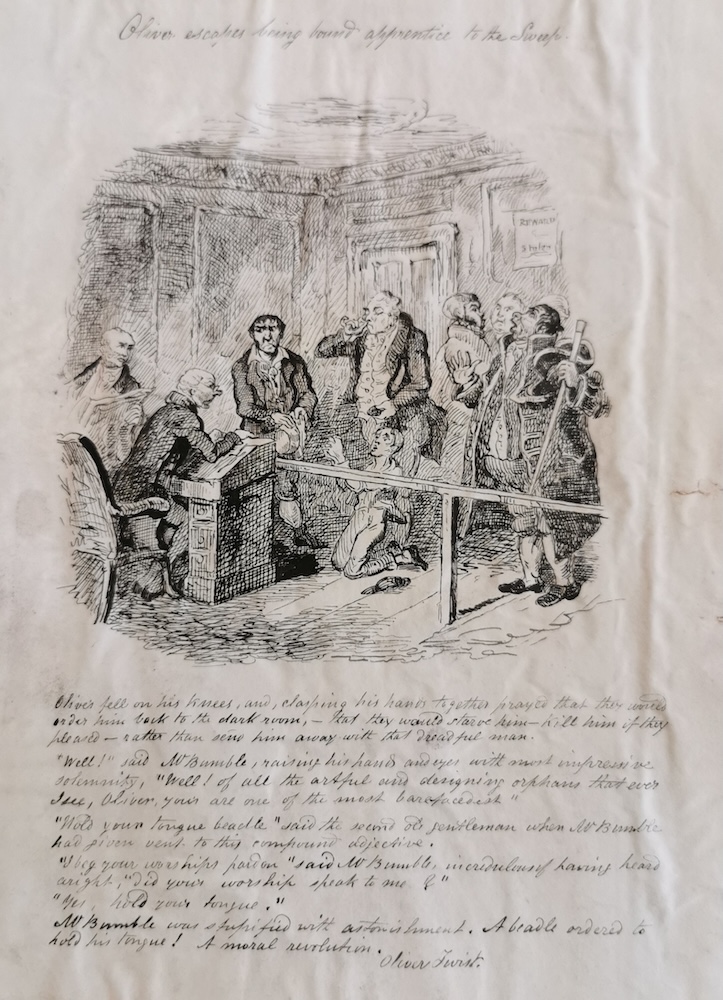 Oliver escapes being bound apprentice to the Sweep.
REWARD
Stolen
Oliver fell on his knees, and, clasping his hands together prayed that they would
order him back to the dark room, – that they would starve him – kill him if they
pleased – rather than send him away with that dreadful man.
"Well!" said Mr Bumble, raising his hands and eyes with most impressive
solemnity, "Well! of all the artful and designing orphans that ever
I see, Oliver, your are one of the most barefacedest"
"Hold your tongue beadle" said the second old gentleman when Mr Bumble
had given vent to this compound adjective.
"I beg your worships pardon" said Mr Bumble, incredulous of having heard
aright, "did your worship speak to me ?"
"Yes, hold your tongue."
Mr Bumble was stupified with astonishment. A beadle ordered to
hold his tongue! A moral revolution.
Oliver Twist.